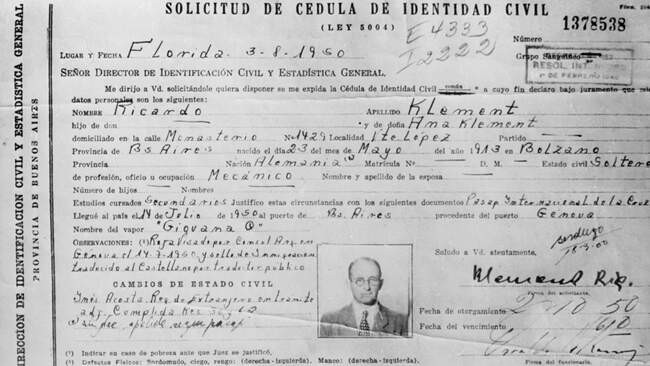 SOLICITUD DE CEDULA DE IDENTIDAD CIVIL
(LEY 5004)
E4333
I2222
Número
1378538
LUGAR Y FECHA Florida 3-8-1950
Grupo Sanguíneo
RESOL. INT.
SEÑOR DIRECTOR DE IDENTIFICACIÓN CIVIL Y ESTADÍSTICA GENERAL.
Me dirijo a Vd. solicitándole quiera disponer se me expida la Cédula de Identidad Civil común a cuyo fin declaro bajo juramento que
datos personales son los siguientes:
NOMBRE Ricardo APELLIDO Klement
hijo de don y de doña Ana Klement
domiciliado en la calle Monasterio Nº 1429 Localidad Vte. López Partido
Provincia de Bs Aires nacido el día 23 del mes de Mayo del año 1913 en Bolzano
Provincia Nación Alemania Matrícula Nº D. M. Estado civil Soltero
de profesión, oficio u ocupación Mecánico Nombre y apellido de la esposa
Número de hijos Nombres
Estudios cursados Secundarios Justifico estas circunstancias con los siguientes documentos Pasap. Internacional de la Cruz
Llegué al país el 14 de Julio de 1950 al puerto de Bs. Aires precedente del puerto Genova
Nombre del vapor "Giovana C"
OBSERVACIONES: (1) Roja visado por Consul Arg. en
Genova el 14-7-1950, y sello de Inmigracion
traducido al Castellano por traductor publico
Saludo a Vd. atentamente,
CAMBIOS DE ESTADO CIVIL
Klement Ric.
Firma del solicitante.
Inés Acosta Reg. de extranjero en tramite
Fecha de otorgamiento 2 10 50
Fecha de vencimiento 60
Firma del funcionario.
(1) Indicar en caso de pobreza ante que Juez se justificó.
(2) Defectos Físicos: Sordomudo, ciego, rengo: (derecha-izquierda). Manco: (derecha-izquierda).
DIRECCION DE IDENTIFICACION CIVIL Y ESTADISTICA GENERAL
PROVINCIA DE BUENOS AIRES